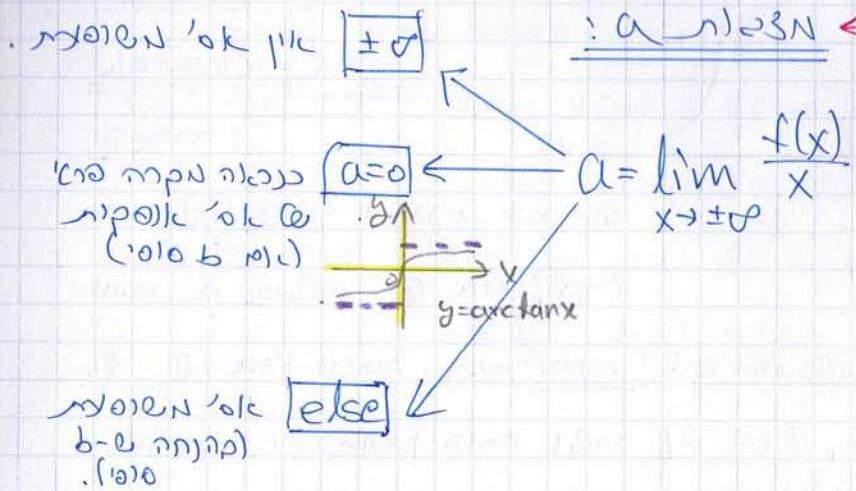 מציאת a :
a = lim x→±∞ f(x)/x
±∞ אין אס' משופעת .
a=0 כנראה מקרה פרטי
של אס' אופקית
(אם b סופי)
y
x
0
y=arctanx
else אס' משופעת
(בהנחה ש-b
סופי).